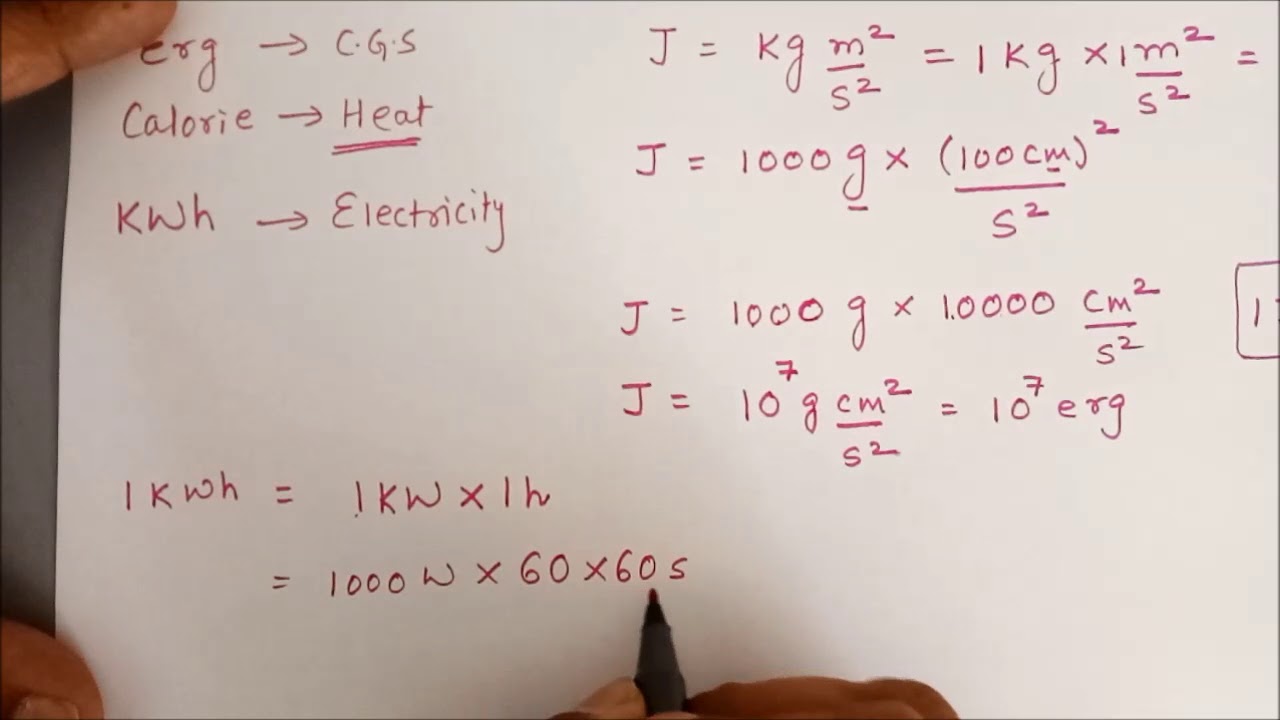 erg → C.G.S
Calorie → Heat
KWh → Electricity
J = Kg m²/s² = 1 Kg × 1 m²/s² =
J = 1000 g × (100 cm)²/s²
J = 1000 g × 1.0000 cm²/s²
1
J = 10⁷ g cm²/s² = 10⁷ erg
1 KWh = 1 KW × 1 h
= 1000 W × 60 × 60 s